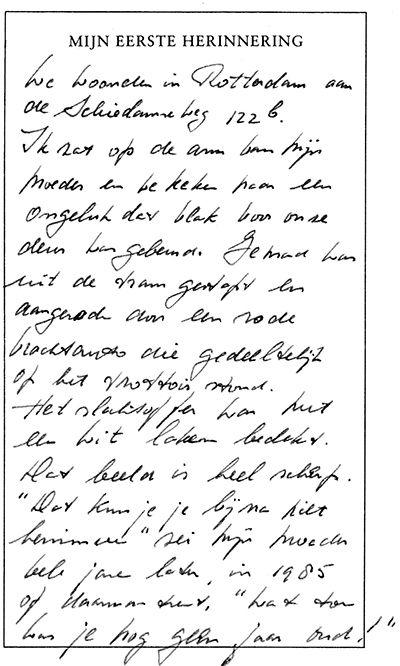 MIJN EERSTE HERINNERING
We woonden in Rotterdam aan
de Schiedamseweg 122 b.
Ik zat op de arm van mijn
moeder en we keken naar een
ongeluk dat vlak voor onze
deur was gebeurd. Iemand was
uit de tram gestapt en
aangereden door een rode
vrachtauto die gedeeltelijk
op het trottoir stond.
Het slachtoffer was met
een wit laken bedekt.
Dat beeld is heel scherp.
"Dat kun je je bijna niet
herinneren" zei mijn moeder
vele jaren later, in 1985
of daaromtrent, "want toen
was je nog geen jaar oud!"